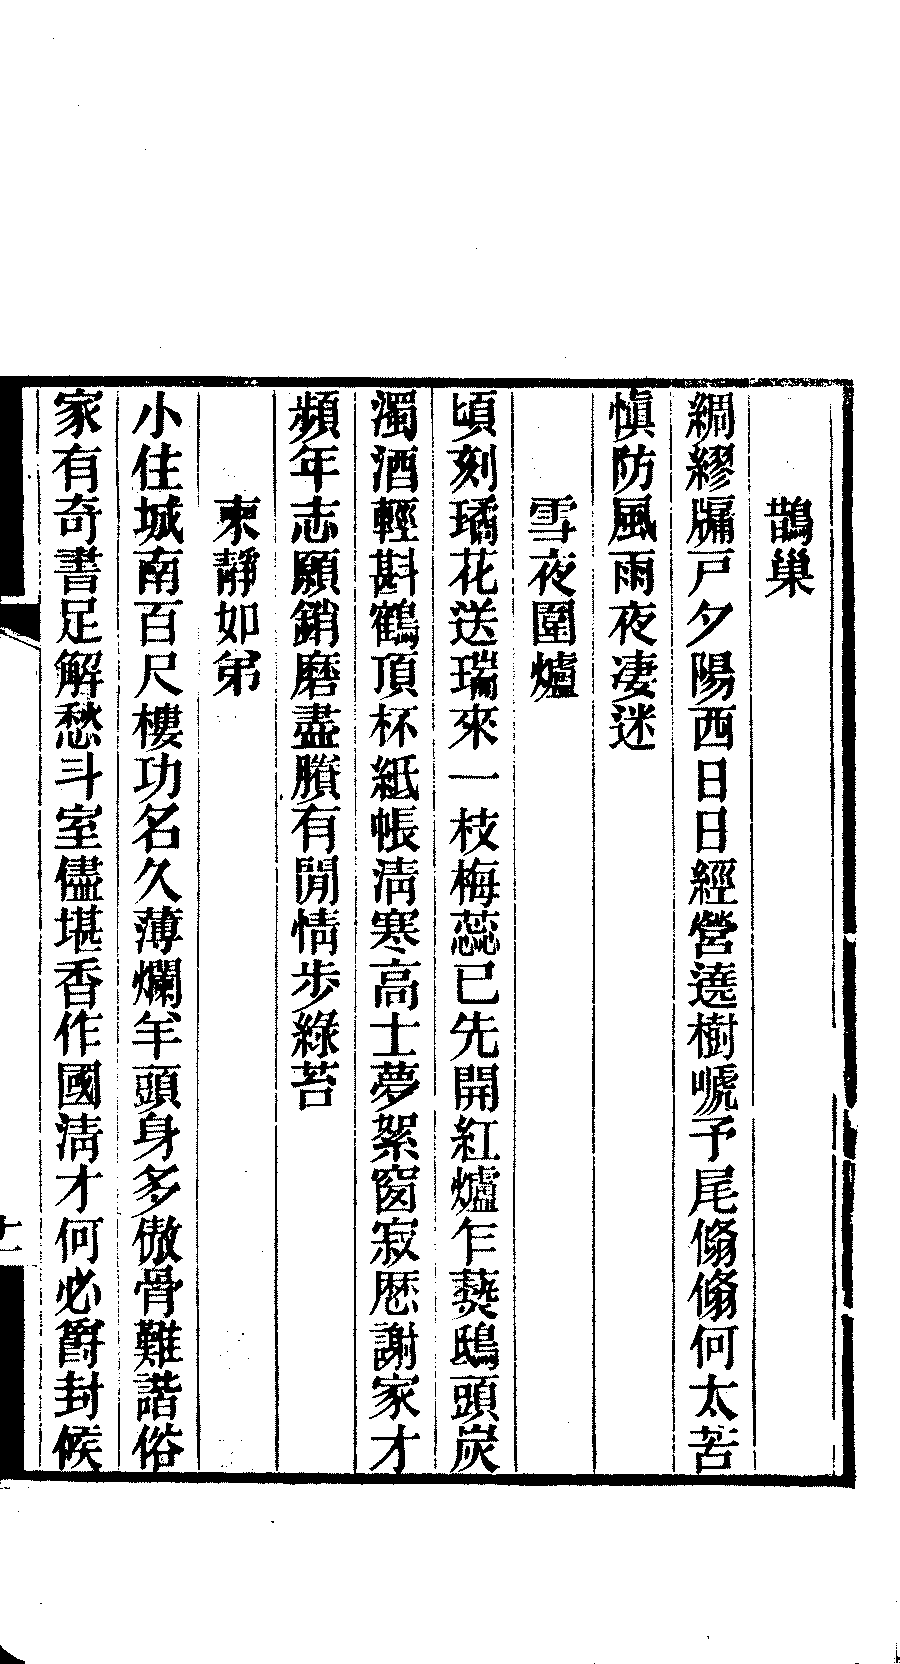 鵲巢
綢繆牖戸夕陽西日日經營遶樹嗁予尾翛翛何太苦
愼防風雨夜淒迷
雪夜圍爐
頃刻璚花送瑞來一枝梅蕊已先開紅爐乍爇鴟頭炭
濁酒輕斟鶴頂杯紙帳淸寒高士夢絮窗寂厯謝家才
頻年志願銷磨盡賸有閒情步綠苔
柬靜如弟
小住城南百尺樓功名久薄爛羊頭身多傲骨難諧俗
家有奇書足解愁斗室儘堪香作國淸才何必爵封候
十一